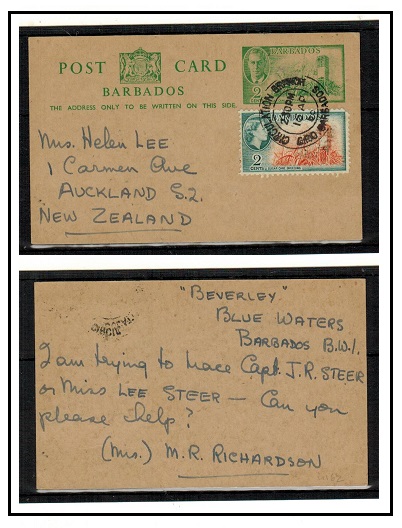 POST CARD
BARBADOS
THE ADDRESS ONLY TO BE WRITTEN ON THIS SIDE.
BARBADOS
2
Mrs. Helen LEE
1 Carmen Ave
AUCKLAND S.2.
NEW ZEALAND
CIRCULATION BRANCH
BARBADOS
2
CENTS
"BEVERLEY"
BLUE WATERS
BARBADOS B.W.I.
I am trying to trace Capt. J.R. STEER
or Miss LEE STEER — Can you
please help?
(Mrs.) M.R. RICHARDSON